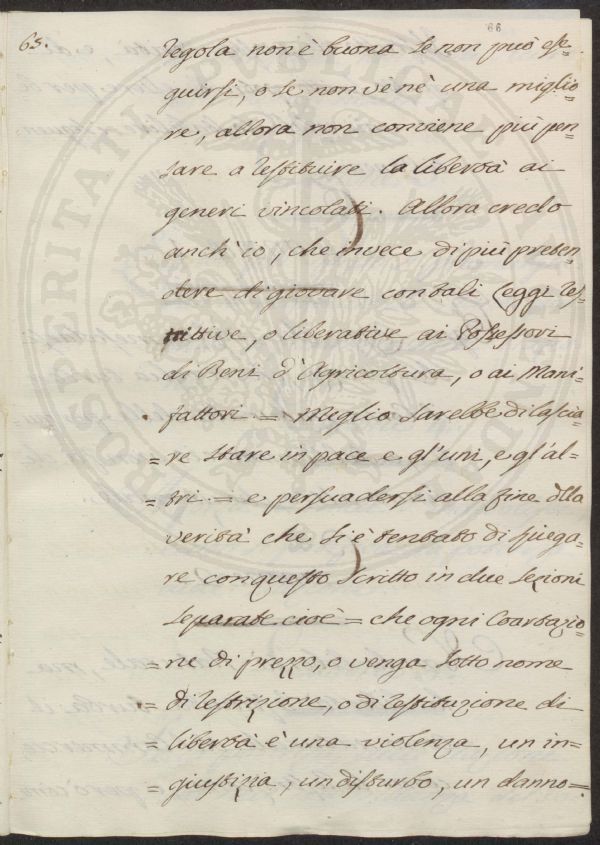 66
65.
regola non è buona se non può ese=
guirsi, o se non vè nè una miglio=
re, allora non conviene più pen=
sare a restituire la libertà ai
generi vincolati. Allora credo
anch'io, che invece di più preten=
dere di giovare con tali Leggi res=
trittive, o liberative ai Possessori
di Beni d'Agricoltura, o ai Mani=
fattori = Meglio sarebbe di lascia=
=re stare in pace e gl'uni, e gl'al=
=tri = e persuadersi alla fine della
verità che si è tentato di spiega=
re con questo scritto in due sezioni
separate cioè = che ogni Coartazio=
=ne di prezzo, o venga sotto nome
=di restrizione, o di restituzione di
=libertà è una violenza, un in=
=giustizia, un disturbo, un danno=
PROSPERITATI PUBLICAE AUGENDAE